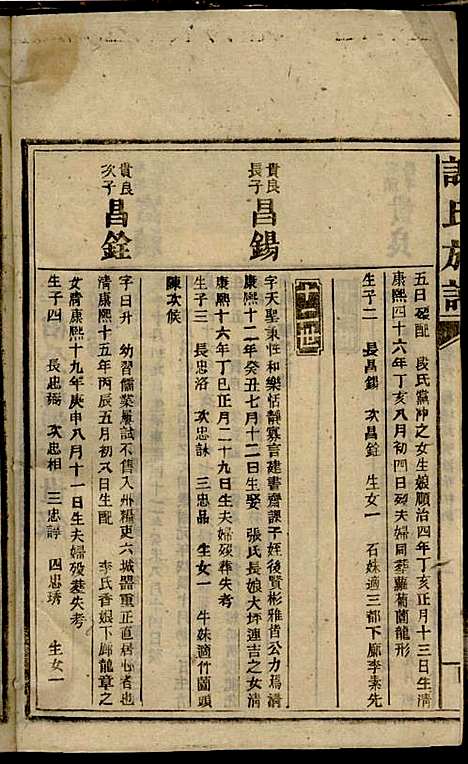 五日歿配 段氏黨沖之女生娘順治四年丁亥正月十三日生清
康熙四十六年丁亥八月初四日歿夫婦同塟蘿蔔園龍形
生子二 長昌錫 次昌銓 生女一 石妹適三都下廊李素先
貴良長子 昌錫
字天聖秉性和樂恬靜寡言建書齋課子姪後賢彬雅皆公力焉清
康熙十二年癸丑七月十二日生娶 張氏長娘大坪連吉之女清
康熙十六年丁巳正月二十九日生夫婦歿葬失考
生子三 長忠洛 次忠詠 三忠品 生女一 牛妹適竹園頭
陳次候
貴良次子 昌銓
字日升 幼習儒業屢試不售入州糧吏六城器重正直居心者也
清康熙十五年丙辰五月初八日生配 李氏香娘下廊龍章之
女清康熙十九年庚申八月十一日生夫婦歿塟失考
生子四 長忠瑒 次忠相 三忠諄 四忠琇 生女一